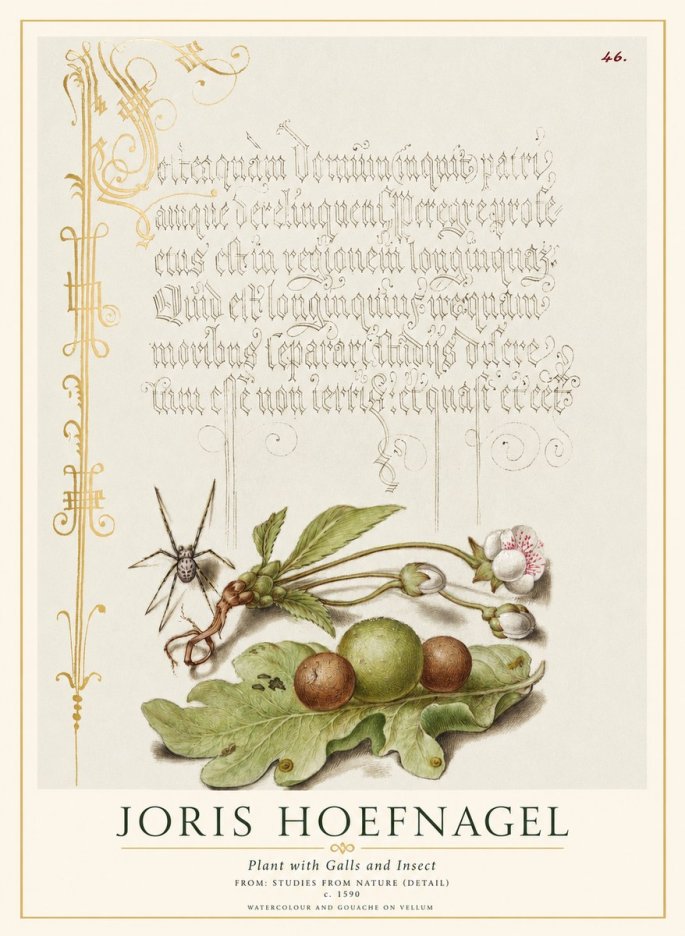 46.
Posteaquàm Dominum (inquit) patri,
amque derelinquens, Peregre profe
ctus est in regionem longinquaz.
Quid est longinquius
moribus separari, studijs discre
tum esse non terris: et quasi
JORIS HOEFNAGEL
Plant with Galls and Insect
FROM: STUDIES FROM NATURE (DETAIL)
c. 1590
WATERCOLOUR AND GOUACHE ON VELLUM